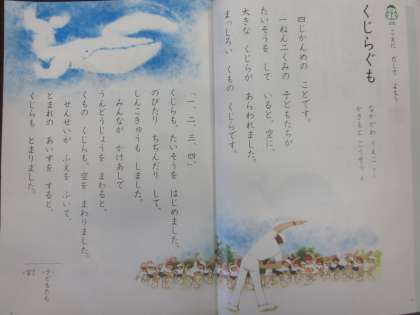 くじらぐも
こえに だして よもう
なかがわ りえこ
かきもと こうぞう
四じかんめの ことです。
一ねん二くみの 子どもたちが
たいそうを して いると、空に、
大きな くじらが あらわれました。
まっしろい くもの くじらです。
「一、二、三、四。」
くじらも、たいそうを はじめました。
のびたり ちぢんだり して、
しんこきゅうも しました。
みんなが かけあしで
うんどうじょうを まわると、
くもの くじらも、空を まわりました。
せんせいが ふえを ふいて、
とまれの あいずを すると、
くじらも とまりました。
子どもたち